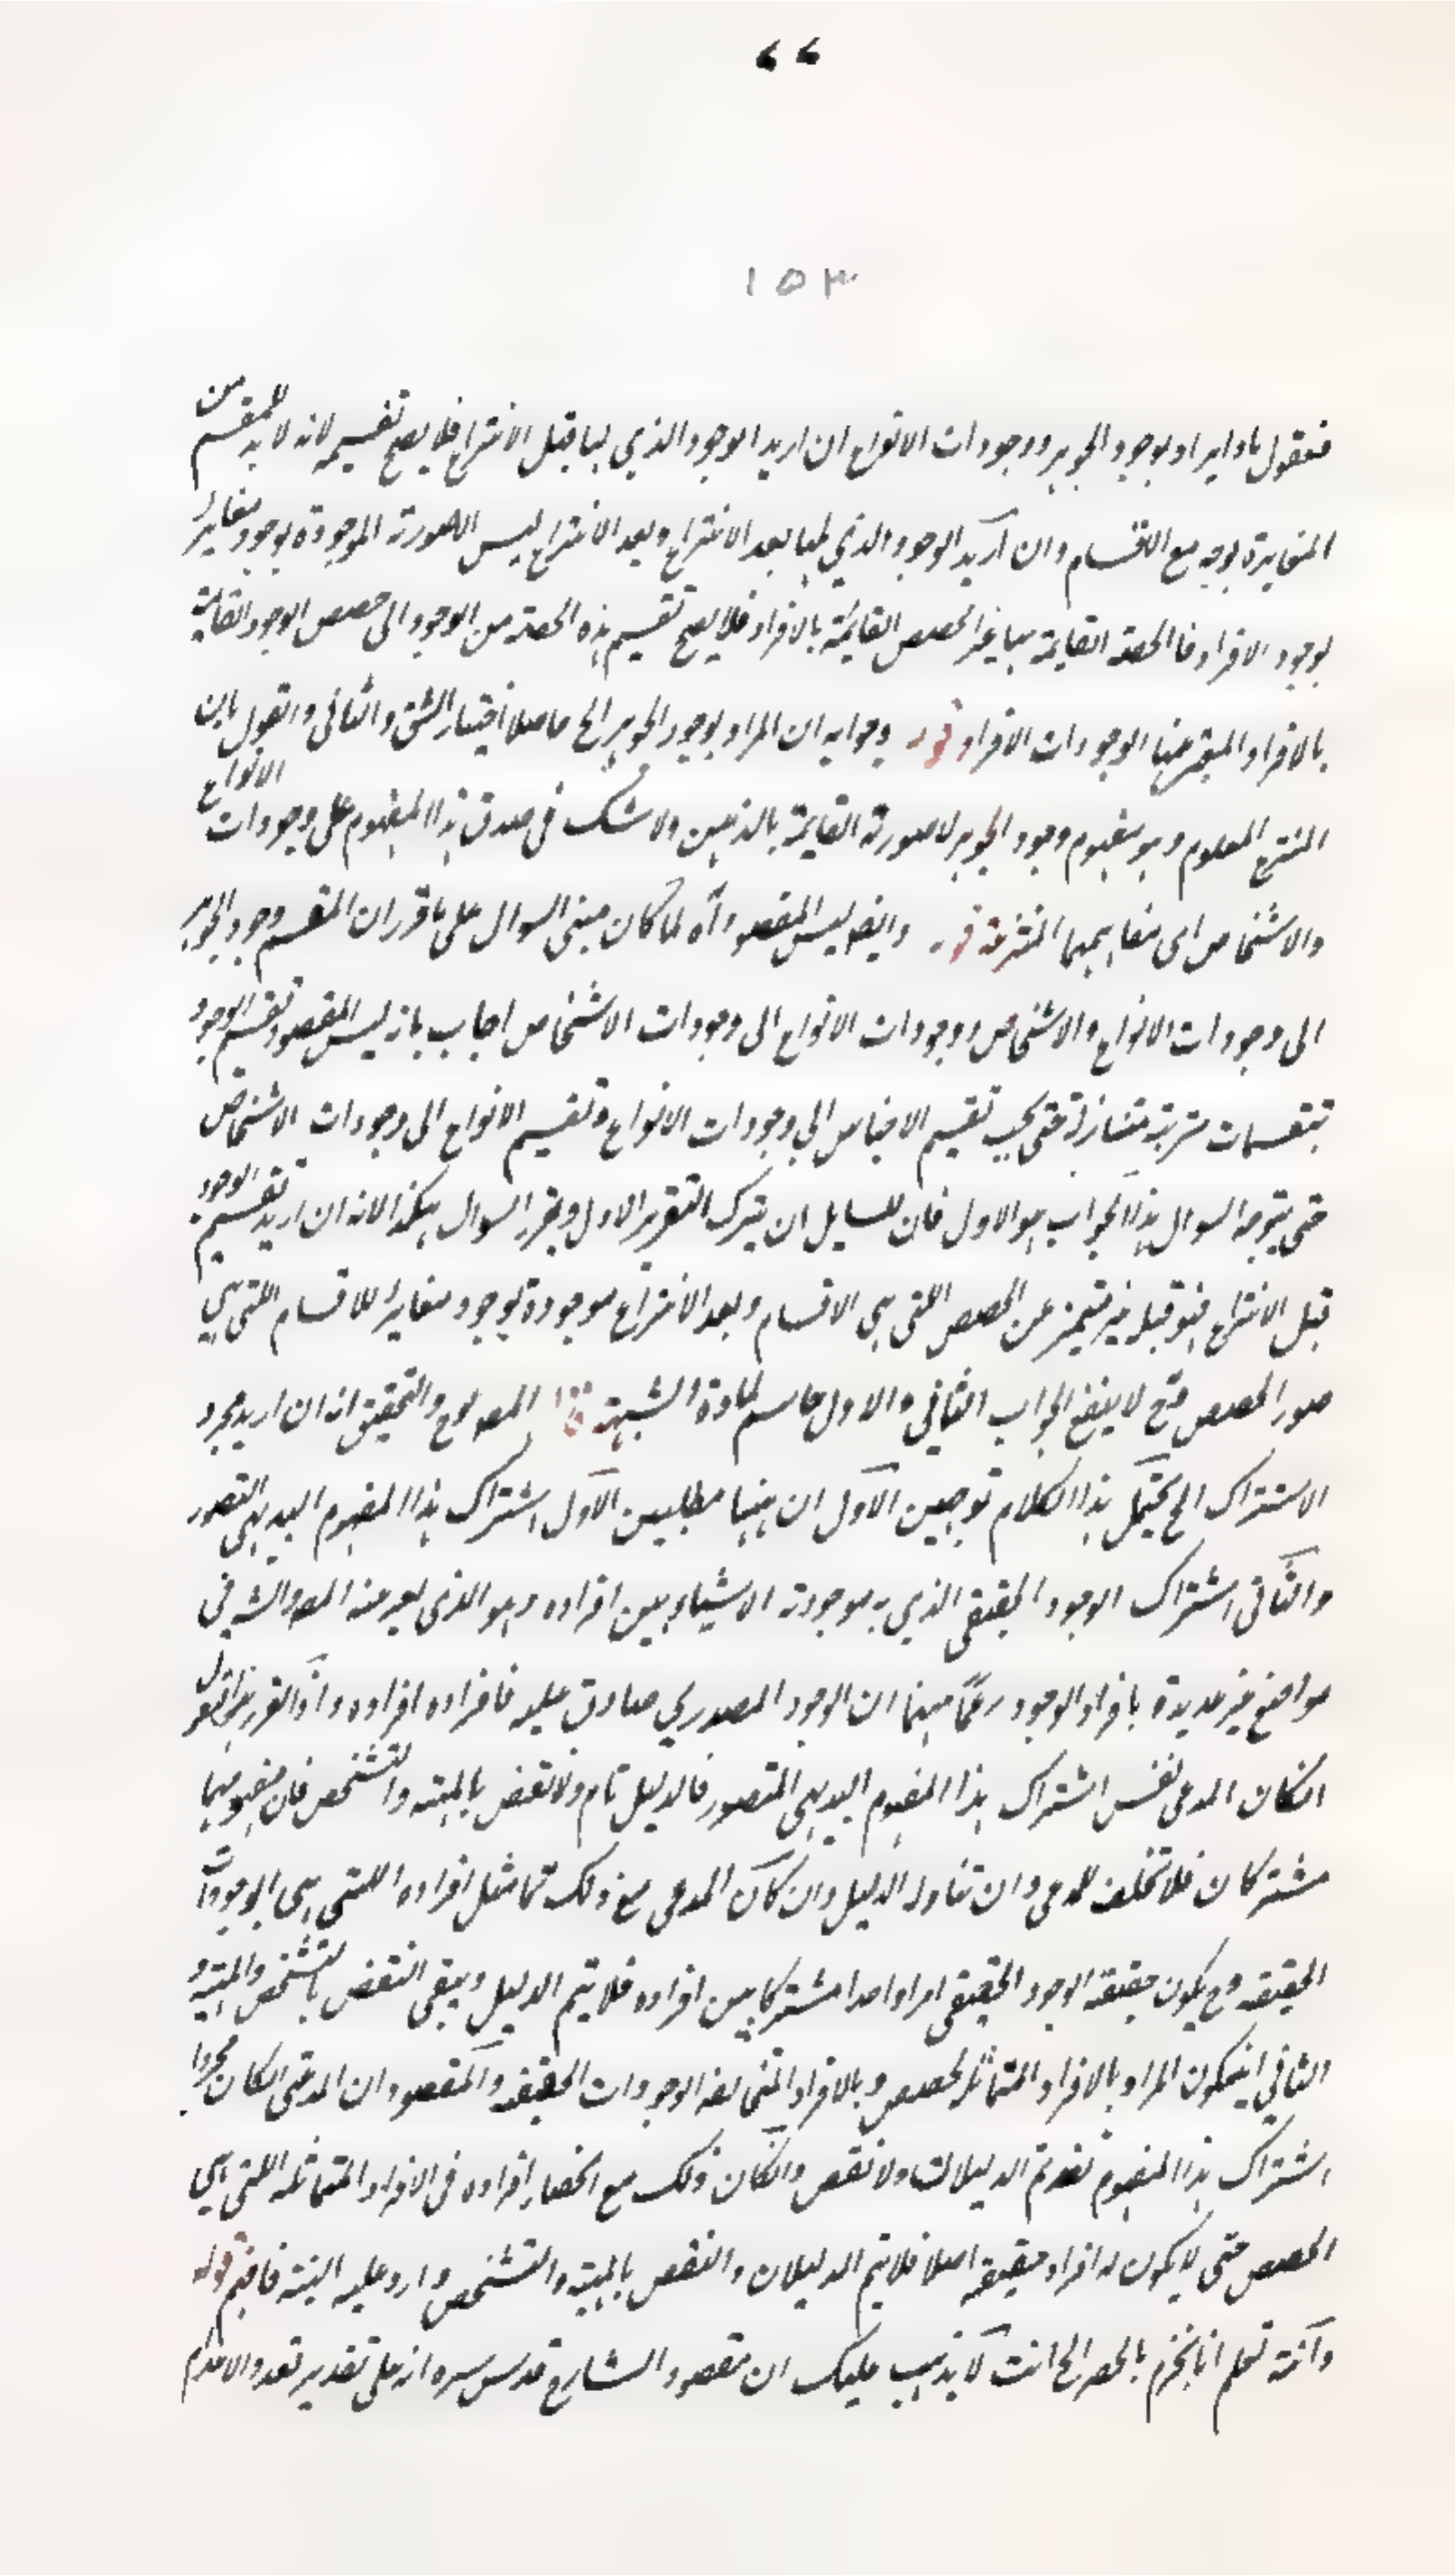 ٦٦
١٥٣
فنقول ماذا يراد بوجود الجوهر ووجودات الانواع ان اريد الوجود الذي لها قبل الانتزاع فلا يصح تقسيمه لانه لا بد للمقسم من
المغايرة بوجه مع الاقسام وان اريد الوجود الذي لها بعد الانتزاع وبعد الانتزاع ليس الصورة الموجودة بوجود مغاير
لوجود الافراد فالحصة القايمة بها غير الحصص القايمة بالافراد فلا يصح تقسيم هذه الحصة من الوجود الى حصص الوجود القايمة
بالافراد المعبر عنها الوجودات الافراد قوله وجوابه ان المراد بوجود الجوهر الخ حاصله اختيار الشق الثاني والقول بان
المنتزع المعلوم وهو مفهوم وجود الجوهر لا صورته القايمة بالذهن ولا شك في صدق هذا المفهوم على وجودات الانواع
والاشخاص اى مفاهيمها المنتزعة قوله وايضا ليس المقصود آه لما كان مبنى السوال على ما قرر ان المقسم وجود الجوهر
الى وجودات الانواع والاشخاص ووجودات الانواع الى وجودات الاشخاص اجاب بانه ليس المقصود تقسيم الوجود
بتقسيمات مترتبة متنازلة حتى يجب تقسيم الاجناس الى وجودات الانواع وتقسيم الانواع الى وجودات الاشخاص
حتى يتوجه السوال هذا الجواب هو الاول فان للسايل ان يترك التقرير الاول ويقرر السوال هكذا لانه ان اريد تقسيم الوجود
قبل الانتزاع فهو قبله غير متميز عن الحصص التي هي الاقسام وبعد الانتزاع موجودة بوجود مغاير للاقسام التي هي
صور الحصص وح لا ينفع الجواب الثاني والاول حاسم لمادة الشبهة قال المص مع والتحقيق انه ان اريد مجرد
الاشتراك الخ يحتمل هذا الكلام توجيهين الاول ان ههنا مطلبين الاول اشتراك هذا المفهوم البديهي التصور
والثاني اشتراك الوجود الحقيقي الذي به موجودية الاشياء بين افراده وهو الذي يعبر عنه المص والشه في
مواضع غير عديدة بافراد الوجود زعما منهما ان الوجود المصدري صادق عليه فافراده افراده واذا تقرر هذا فنقول
ان كان المدعى نفس اشتراك هذا المفهوم البديهي المتصور فالدليل تام ولا نقض بالمهية والتشخص فان مفهوميهما
مشتركان فلا تخلف للمدعى وان تناوله الدليل وان كان المدعى مع ذلك تماثل افراده التي هي الوجودات
الحقيقة وح يكون حقيقة الوجود الحقيقي امرا واحدا مشتركا بين افراده فلا يتم الدليل ويبقى النقض بالتشخص والمهية و
الثاني ان يكون المراد بالافراد المتماثلة الحصص وبالافراد المتخالفة الوجودات الحقيقة والمقصود ان المدعى ان كان مجرد
اشتراك هذا المفهوم فقد تم الدليلان ولا نقض وان كان ذلك مع انحصار افراده في الافراد المتماثلة التي هي
الحصص حتى لا يكون له افراد حقيقة اصلا فلا يتم الدليلان والنقض بالمهية والتشخص وارد عليه البتة فافهم قوله
وانت تعلم انا نجزم بالحصر الخ انت لا يذهب عليك ان مقصود الشارح قدس سره انه على تقدير تعدد الاعدام